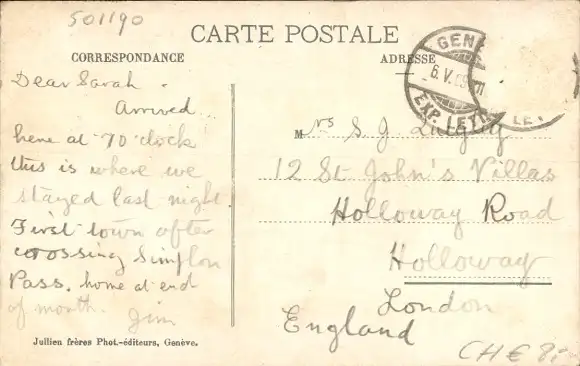 501190
CARTE POSTALE
CORRESPONDANCE
ADRESSE
Dear Sarah.
Arrived
here at 7 O'clock
this is where we
stayed last night
First town after
crossing Simplon
Pass. home at end
of month. Jim
GENÈ
6.V.
EXP. LETT
LET
Mrs S. J.
12 St John's Villas
Holloway Road
Holloway
London
England
Jullien frères Phot.-éditeurs, Genève.
CH € 8.-